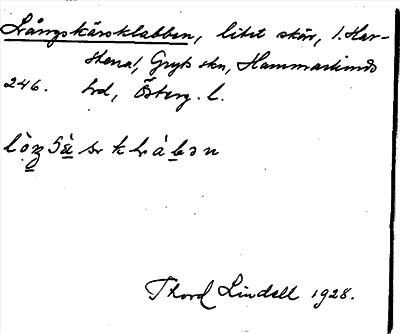 Långskärsklabben, litet skär, l. Har-
stena!, Gryts skn, Hammarkinds
246. hd, Österg. l.
Thord Lindell 1928.